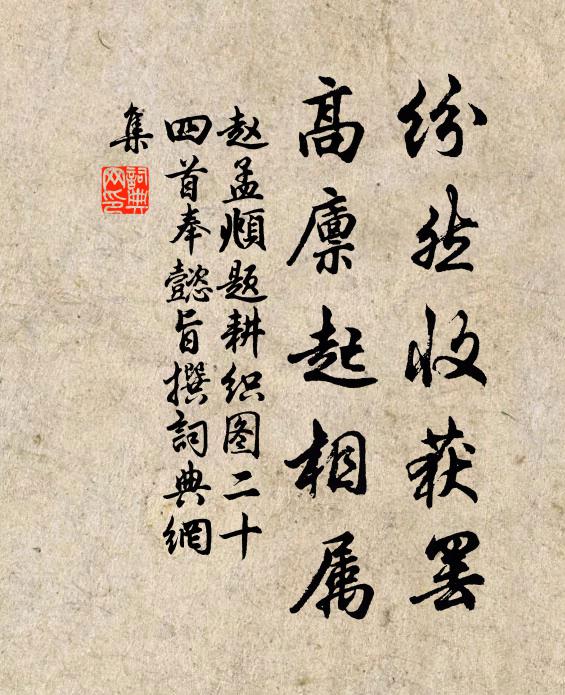 纷然收获罢
高廪起相属
赵孟頫题耕织图二十
四首奉懿旨撰詞典網
集
詞典
网印